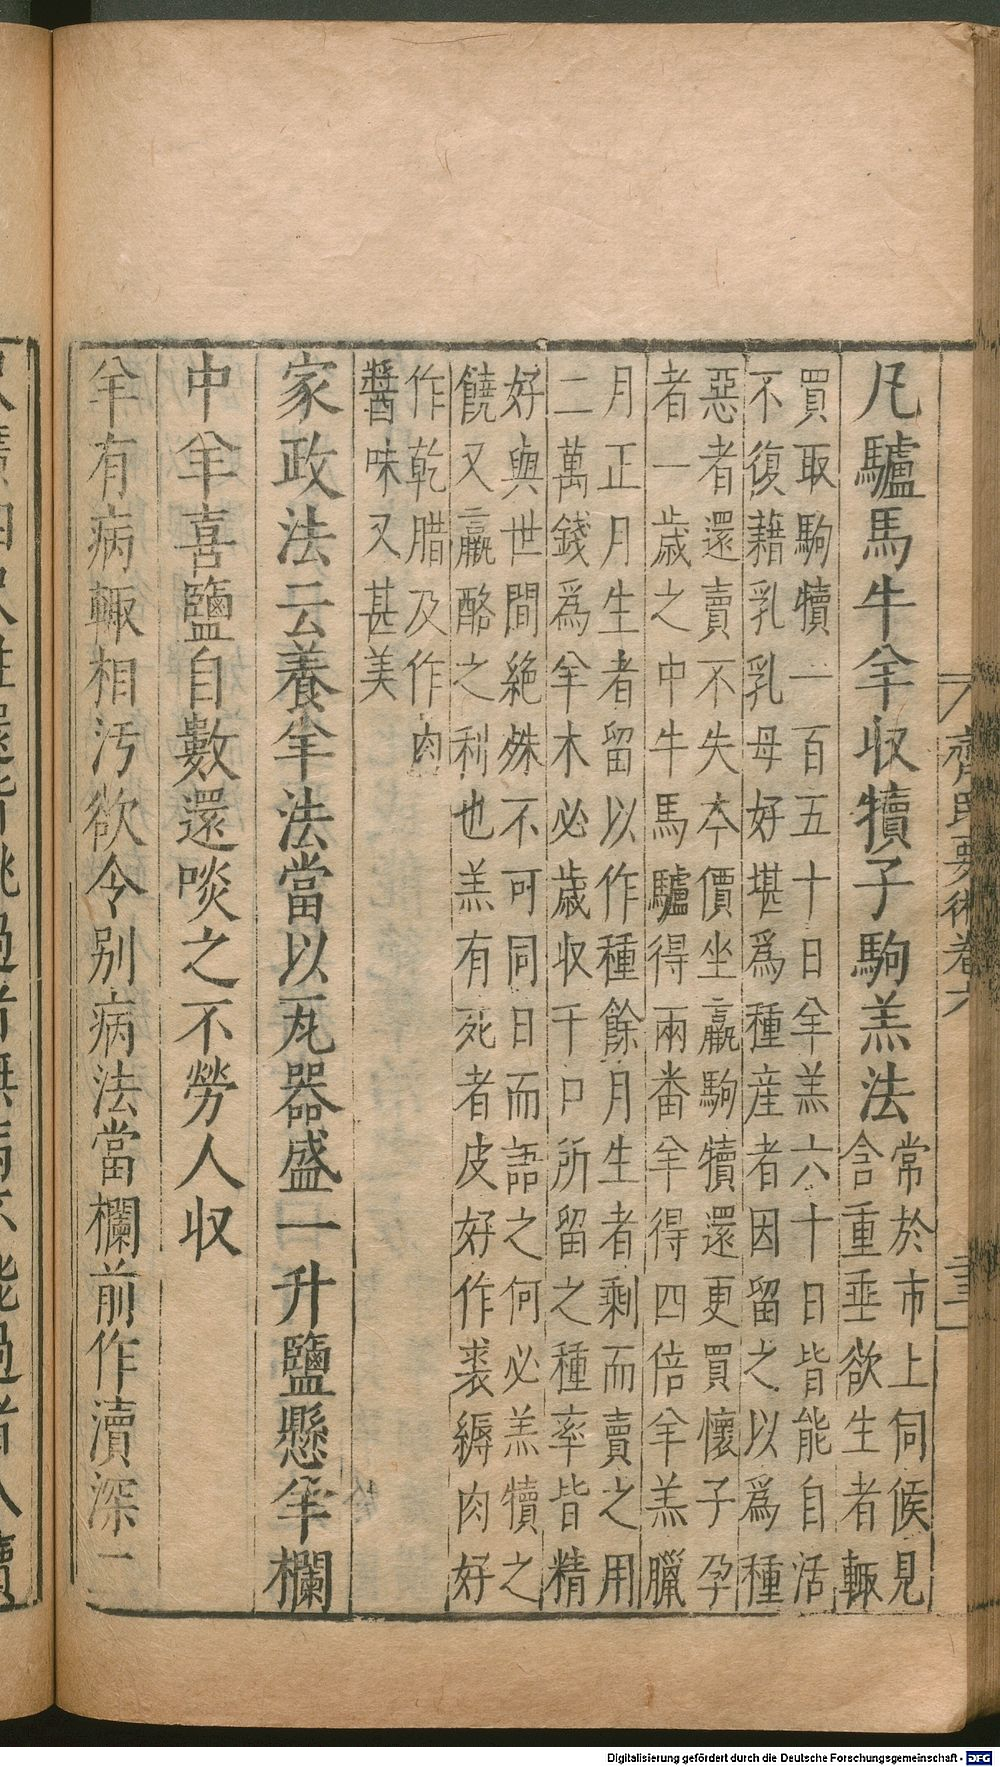 齊民要術卷六
凡驢馬牛羊收犢子駒羔法常於市上伺候見
含重垂欲生者輙
買取駒犢一百五十日羊羔六十日皆能自活
不復藉乳乳母好堪爲種産者因留之以爲種
惡者還賣不失本價坐嬴駒犢還更買懷子孕
者一歳之中牛馬驢得兩番羊得四倍羊羔臘
月正月生者留以作種餘月生者剩而賣之用
二萬錢爲羊木必歳収千口所留之種率皆精
好與世間絶殊不可同日而語之何必羔犢之
饒又嬴酪之利也羔有死者皮好作裘縟肉好
作乾腊及作肉
醬味又甚美
家政法云養羊法當以瓦器盛一升鹽懸羊欄
中羊喜鹽自數還啖之不勞人収
羊有病輙相汚欲令别病法當欄前作瀆深二
Digitalisierung gefördert durch die Deutsche Forschungsgemeinschaft - DFG